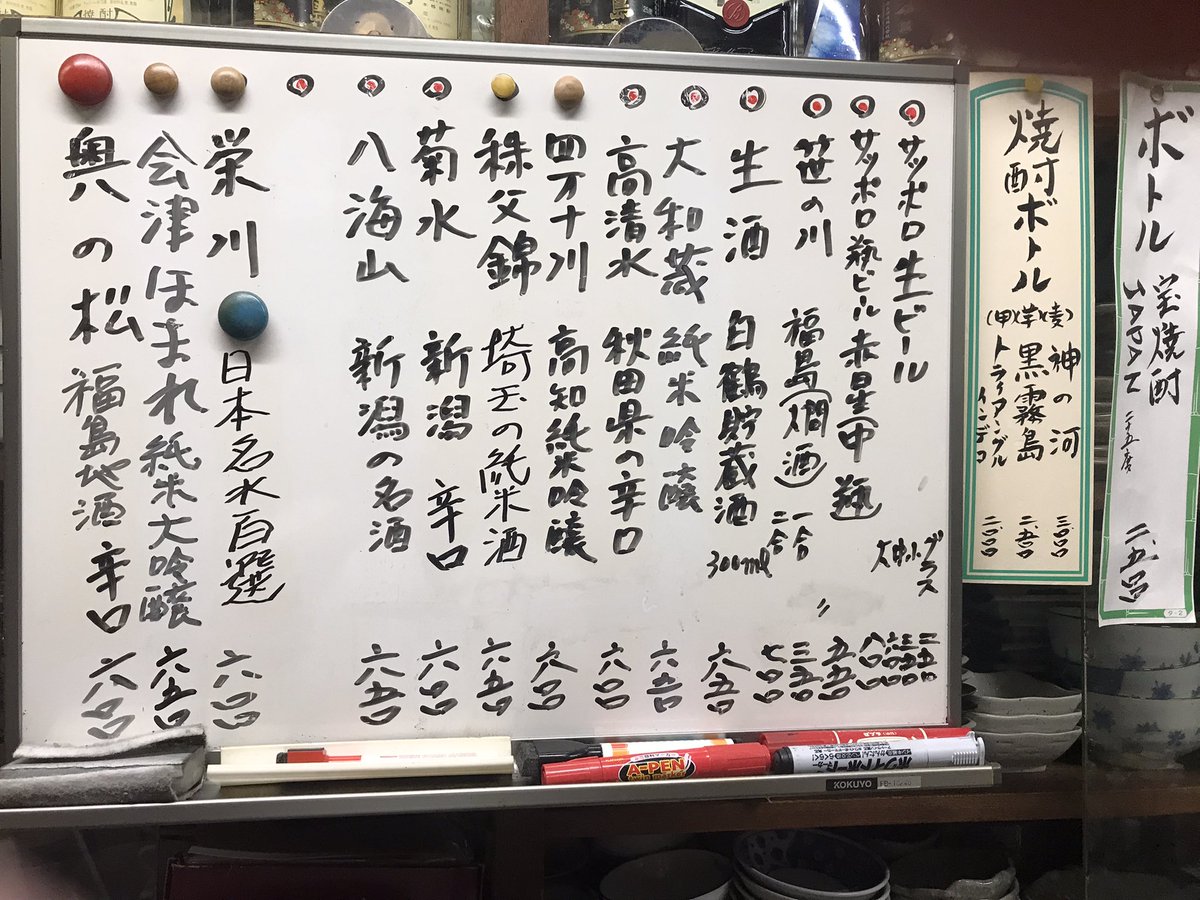 サッポロ生ビール 大中小グラス 八〇〇 六〇〇 三五〇 二五〇
サッポロ瓶ビール赤星(中瓶) 五五〇
笹の川 福島(燗酒) 一合 三五〇
二合 七〇〇
生酒 白鶴貯蔵酒 300ml 六五〇
大和蔵 純米吟醸 六五〇
高清水 秋田県の辛口 六〇〇
四万十川 高知純米吟醸 六〇〇
秩父錦 埼玉の純米酒 六五〇
菊水 新潟 辛口 六〇〇
八海山 新潟の名酒 六五〇
栄川 日本名水百選 六〇〇
会津ほまれ純米大吟醸 六五〇
奥の松 福島地酒 辛口 六〇〇
焼酎ボトル
(麦)神の河 三、〇〇〇
(芋)黒霧島 二、五〇〇
(甲)トライアングルインデコ 二、〇〇〇
ボトル 宝焼酎 JAPAN 二十五度 二、五〇〇
A-PEN
ホワイトボード
KOKUYO
タ-2